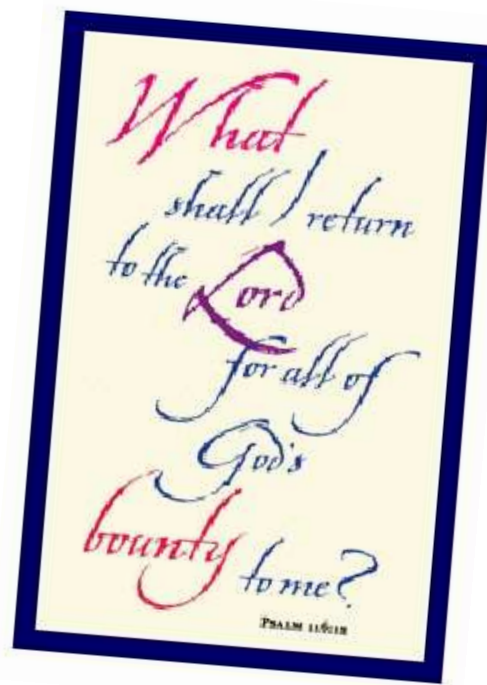 What
shall I return
to the Lord
for all of
God's
bounty to me?
PSALM 116:12